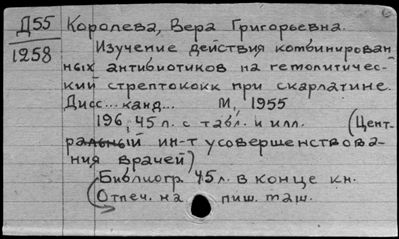 Д55 Королева, Вера Григорьевна.
1258 Изучение действия комбинирован
ных антибиотиков на гемолитичес-
кий стрептококк при скарлатине.
Дисс... канд... М, 1955
196, 45 л. с табл. и илл. (Цент-
ральный ин-т усовершенствова-
ния врачей)
Библиогр 45 л. в конце кн.
(Отпеч. на пиш. маш.